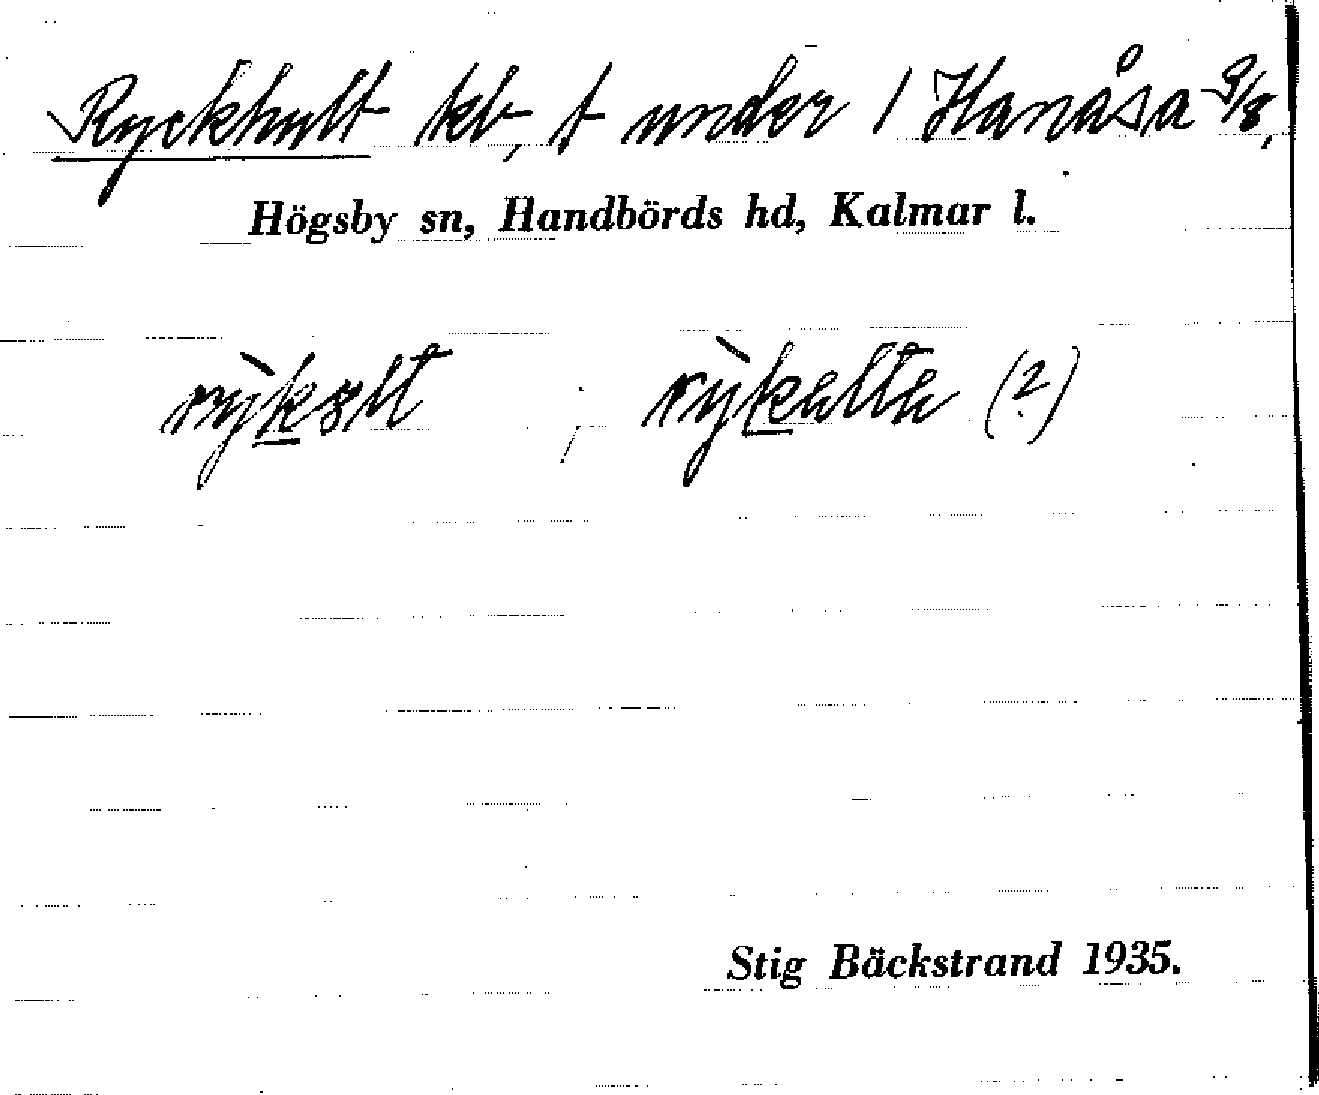 Ryckhult kb, t under 1 Hanåsa 9/8,
Högsby sn, Handbörds hd, Kalmar l.
(?)
Stig Bäckstrand 1935.